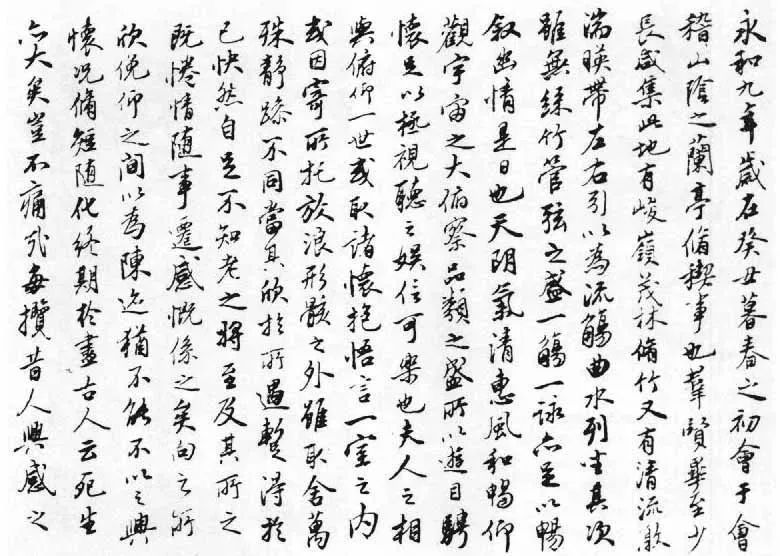 永和九年歲在癸丑暮春之初會于會
稽山陰之蘭亭脩稧事也羣賢畢至少
長咸集此地有峻嶺茂林脩竹又有清流激
湍暎帶左右引以為流觴曲水列坐其次
雖無絲竹管弦之盛一觴一詠亦足以暢
敘幽情是日也天朗氣清惠風和暢仰
觀宇宙之大俯察品類之盛所以遊目騁
懷足以極視聽之娛信可樂也夫人之相
與俯仰一世或取諸懷抱悟言一室之內
或因寄所托放浪形骸之外雖取舍萬
殊靜躁不同當其欣於所遇蹔得於
己快然自足不知老之將至及其所之
既惓情随事遷感慨係之矣向之所
欣俛仰之間以為陳迹猶不能不以之興
懷況脩短随化終期於盡古人云死生
亦大矣豈不痛哉每攬昔人興感之